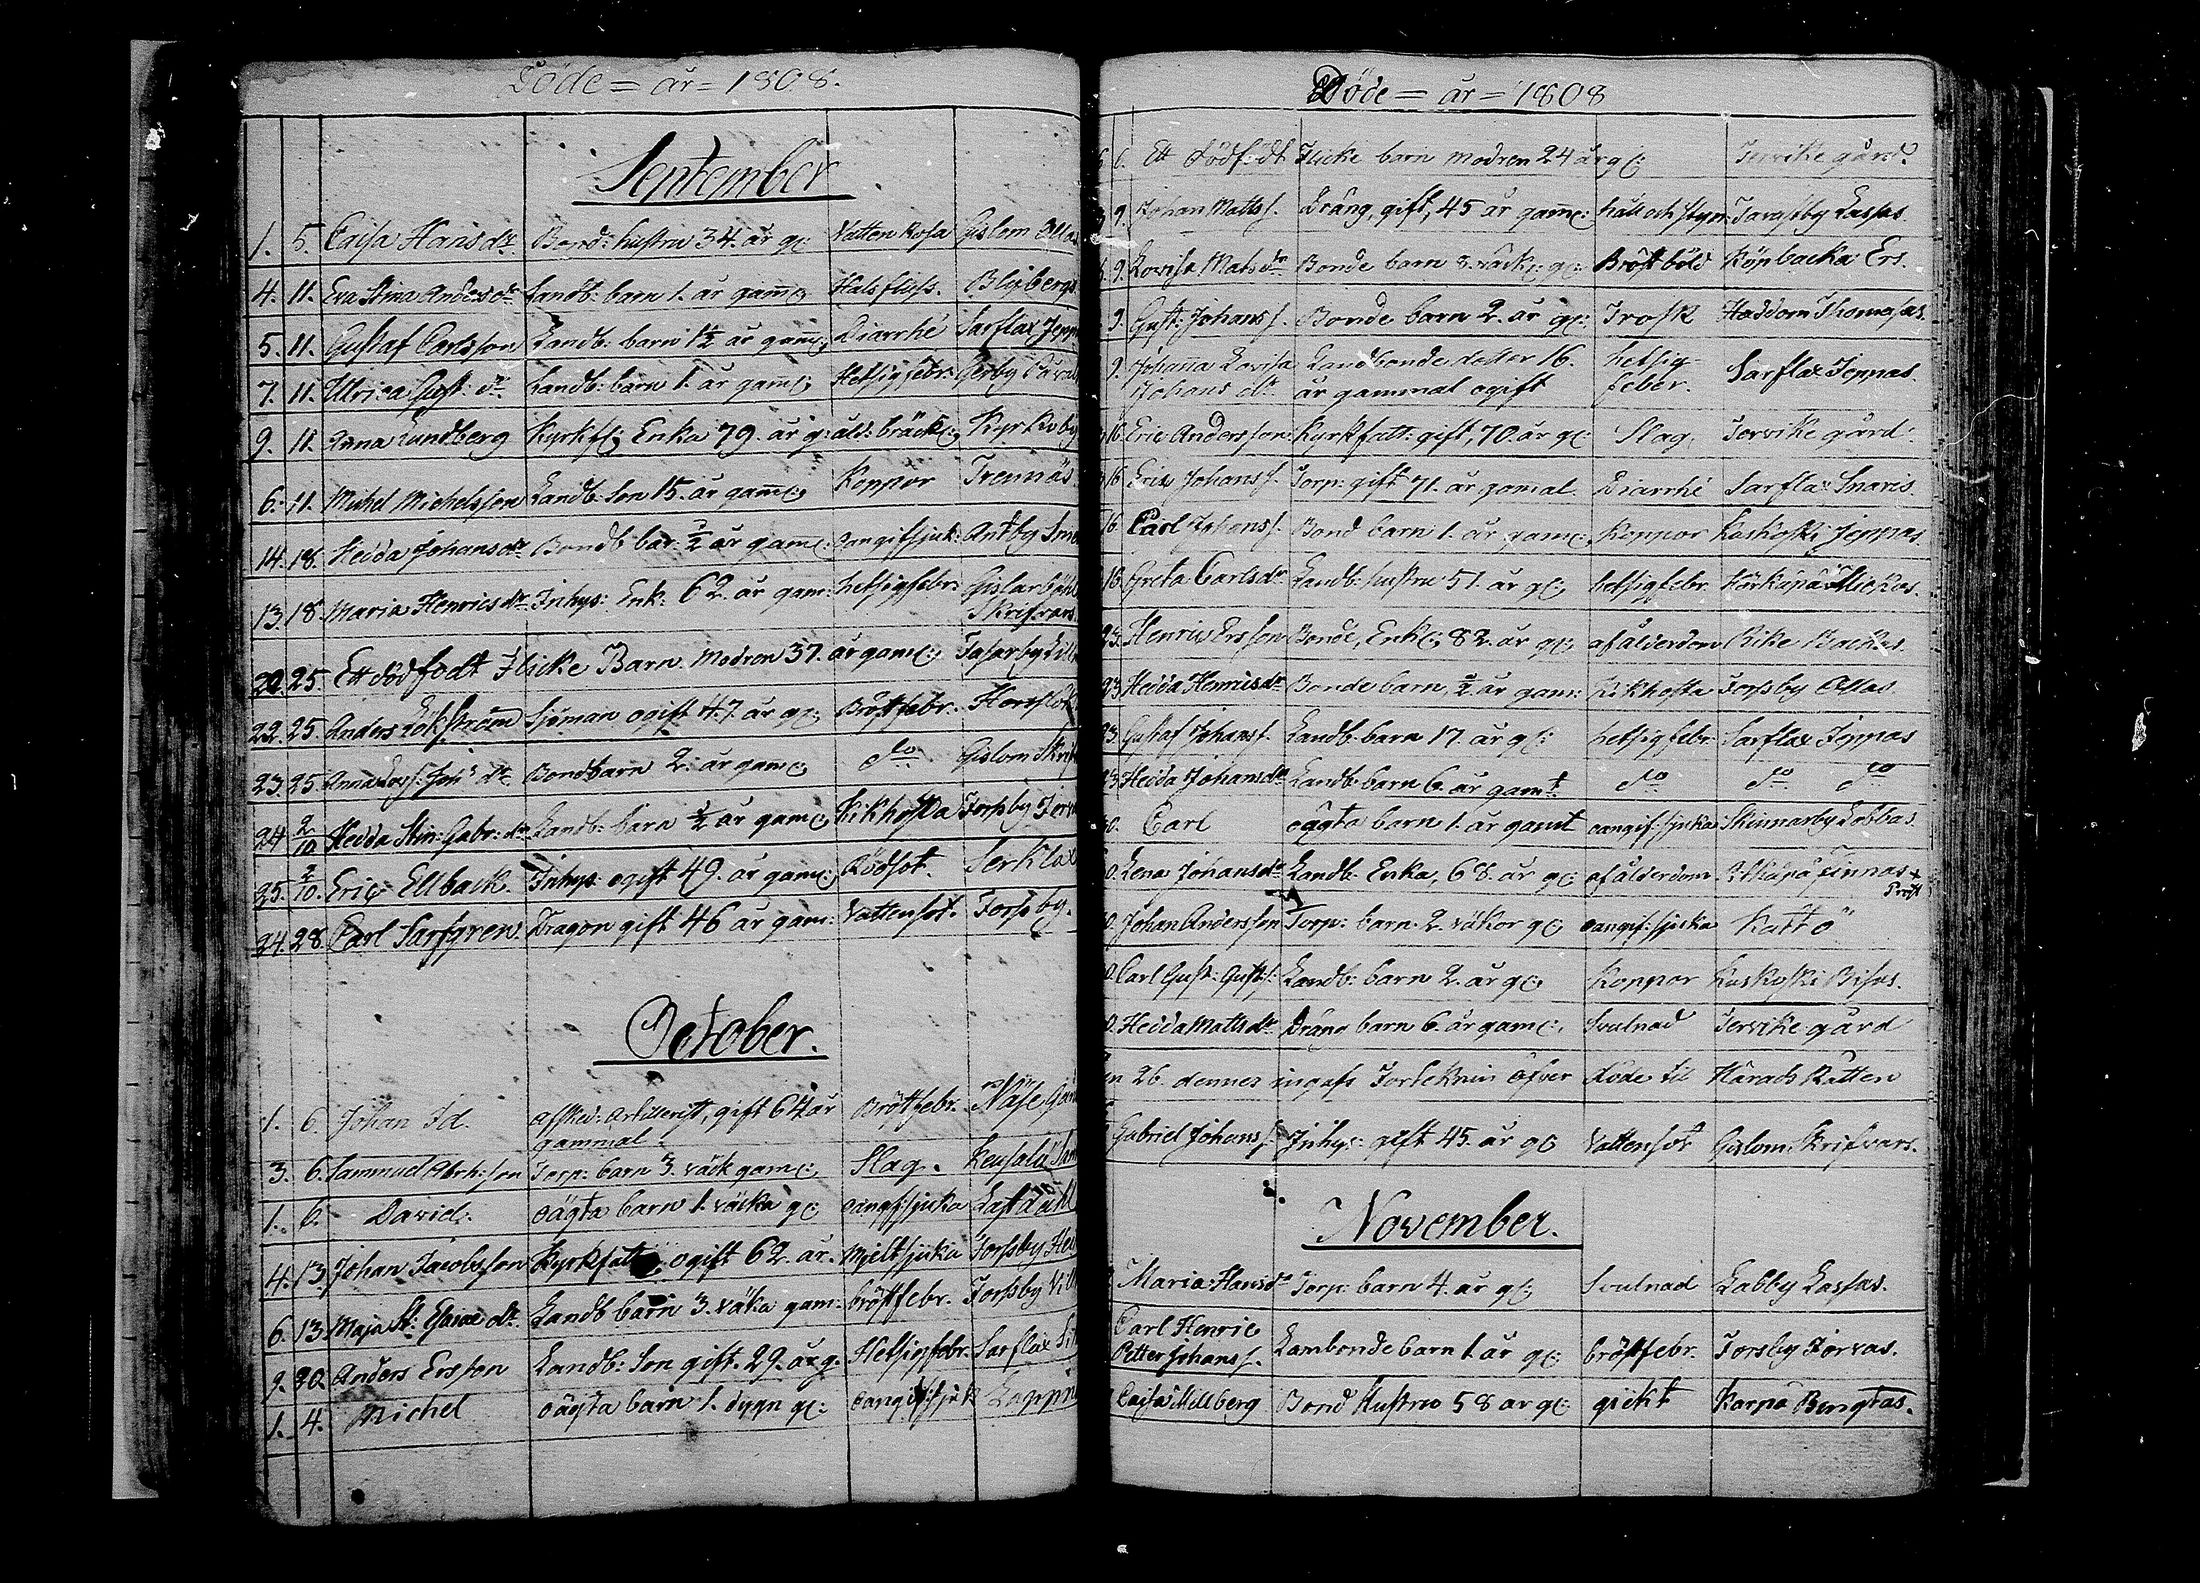 Döde = år = 1808.
September
1. 5. Caisa Hansdr Bond: hustru 34. år gl: Vatten Rosa Gislom Ollas
4. 11. Eva Stina Andersdr Landb: barn 1. år gaml: Halsfluss. Blybergs
5. 11. Gustaf Carlsson Landb: barn 1½ år gaml: Diarrhé Sarflax Jepp
7. 11. Ulrica Gust: dr Landb: barn 1. år gaml: Hetsigfebr: Gerby
9. 11. Anna Lundberg Kyrkf: Enka 79. år g: åld: bräckl: Kyrkoby
6. 11. Michel Michelsson Landb: Son 15. år gaml: Koppor Tremnäs
14. 18. Hedda Johansdr Bondb bar: ½ år gaml: oangifsjuk: Antby Sme
13. 18. Maria Henricsdr Inhys: Enk: 62. år gam: hetsigfebr: Gislarböhle
Skrifvars
22. 25. Ett dödfödt Flicke Barn. Modren 37. år gaml: Tasarby Lill
22. 25. Anders Lökström Sjöman ogift 47. år gl: Bröstfebr. Horslök
23. 25. Anna Lovs: Joh: dr Bondbarn 2. år gaml: do Gislom Skrif
24. 2/10 Hedda Stin: Gabr: dr Landb: barn ½ år gaml: Kikhosta Forssby Jorv
25. 2/10. Eric Ellback. Inhys ogift 49. år gaml: Rödsot. Serklax
24. 28. Carl Sarfgren. Dragon gift 46 år gam: Vattensot. Forssby.
October.
1. 6. Johan Id. afsked: Artillerist, gift 64 år Bröstfebr. Näse Går
gammal
3. 6. Sammuel Abrh:son Torp: barn 3. väck gaml: Slag. Keusala
1. 6. David. oägta barn 1. väcka gl: oangifsjuka
4. 13. Johan Jacobsson Kyrkfatt: ogift 62. år. Mjeltsjuka Forssby
6. 13. Maja St: dr. Landb barn 3. väka gam: bröstfebr. Forssby Vill
9. 30. Anders Ersson Landb: Son gift. 29. år g. Hetsigfebr. Sarflax
1. 4. Michel oägta barn 1. dygn gl: oangifsjuk
Döde = år = 1808
6. Ett dödfödt Flicke barn modren 24 år gl: Tervike gård.
9. Johan Matts s. Dräng, gift, 45 år gaml: håll och styng Lassas.
9. Lovisa Matsdr Bonde barn 3. väck: gl: Bröstböld Köpbacka Ers.
9. Gust: Johans s. Bonde barn 2. år gl: Trosk Haddom Thomasas.
9. Johanna Lovisa Landbonde dotter 16. hetsig-
Johans dr år gammal ogift feber. Sarflax Jeppas.
16. Eric Andersson Kyrkfatt: gift, 70. år gl: Slag. Tervike gård.
16. Eric Johans s. Torp: gift 71. år gamal. Diarrhé Sarflax Snaris.
16. Carl Johans s. Bond barn 1. år gaml: Koppor Koskoski Jeppas.
16. Greta Carlsdr Landb: hustru 51. år gl: hetsigfebr. Mickas.
23. Henric Ersson Bonde, Enkl: 82. år gl: af ålderdom Rike Backas.
23. Hedda Henricsdr Bonde barn, ½ år gam: Kikhosta Forssby Ollas
23. Gustaf Johans s. Landb barn 17. år gl: hetsigfebr. Sarflax Jeppas
23. Hedda Johansdr Landb: barn 6. år gamt do do do
30. Carl oägta barn 1. år gamt oangif: sjuka Skinnarby Lobbas
30. Lena Johansdr Landb: Enka, 68. år gl: af ålderdom Finnas
30. Johan Andersson Torp: barn 2. väkor gl: oangif: sjuka Kattö
30. Carl Gust: Gusts s. Landb: barn 2. år gl: Koppor Koskoski Bisas.
30. Hedda Mattsdr Dräng barn 6. år gaml: Svulnad Tervike gård
26. dennes ingafs Förteknin öfver döde til Härads Rätten
Gabriel Johans s. Inhys: gift 45. år gl: Vattensot Gislom Skrifvars.
November.
Maria Hansdr Torp: barn 4. år gl: Svulnad Labby Lassas.
Carl Henric
Petter Johans s. Lambonde barn 1. år gl: bröstfebr. Forsby Jorvas.
Caisa Millberg Bond Hustru 58 år gl: gickt Karpå Bengtas.